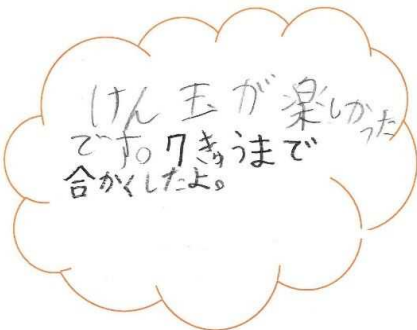 けん玉が楽しかった
です。7きゅうまで
合かくしたよ。